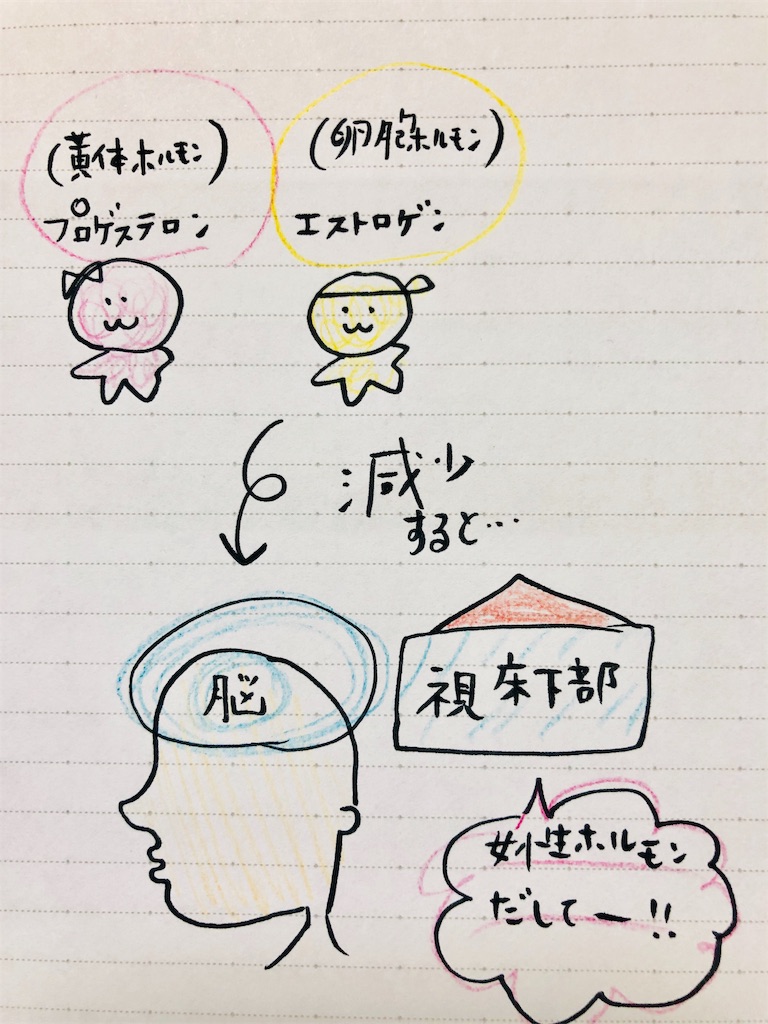 (黄体ホルモン)
プロゲステロン
(卵胞ホルモン)
エストロゲン
減少
すると…
脳
視床下部
女性ホルモン
だしてー!!